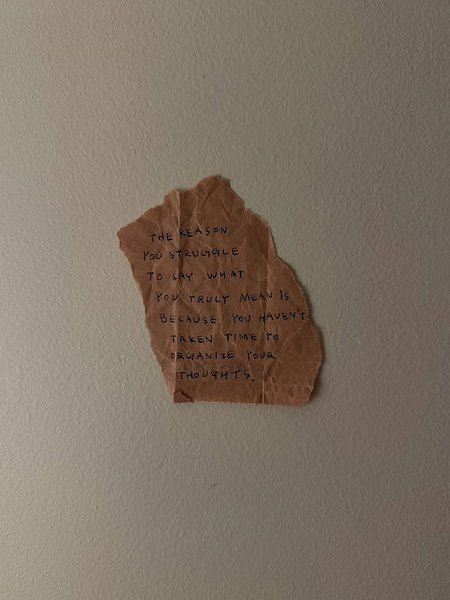 THE REASON
YOU STRUGGLE
TO SAY WHAT
YOU TRULY MEAN IS
BECAUSE YOU HAVEN'T
TAKEN TIME TO
ORGANIZE YOUR
THOUGHTS.